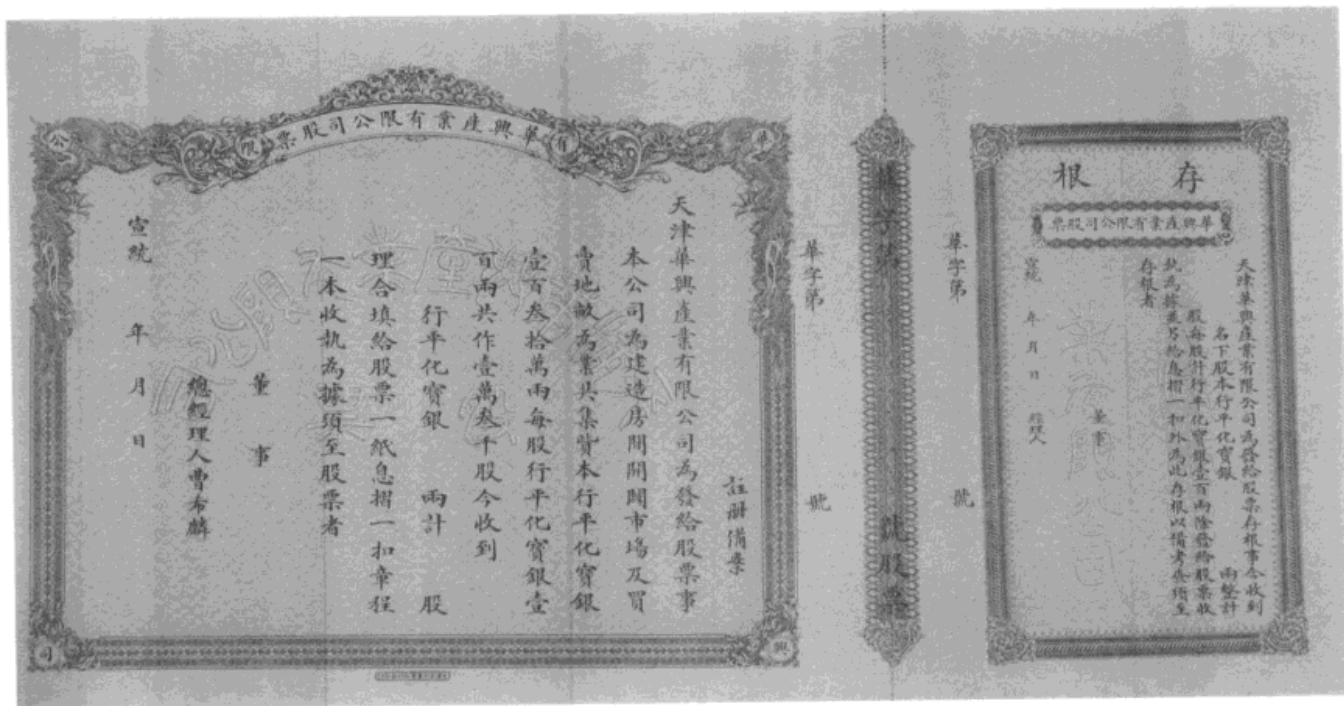 存根
華興產業有限公司股票
天津華興產業有限公司為發給股票存根事今收到
名下股本行平化寶銀 兩整計
股每股計行平化寶銀壹百兩除發給股票收
執為據並另給息摺一扣外為此存根以備考查須至
存根者
董事
宣統 年 月 日 經理人
華字第 號
號股票
華字第 號
華興產業有限公司股票
華
興
有
限
公
司
註冊備案
天津華興產業有限公司為發給股票事
本公司為建造房間開闢市場及買
賣地畝為業共集資本行平化寶銀
壹百叁拾萬兩每股行平化寶銀壹
百兩共作壹萬叁千股今收到
行平化寶銀 兩計 股
理合填給股票一紙息摺一扣章程
一本收執為據須至股票者
董事
總經理人曹希麟
宣統 年 月 日